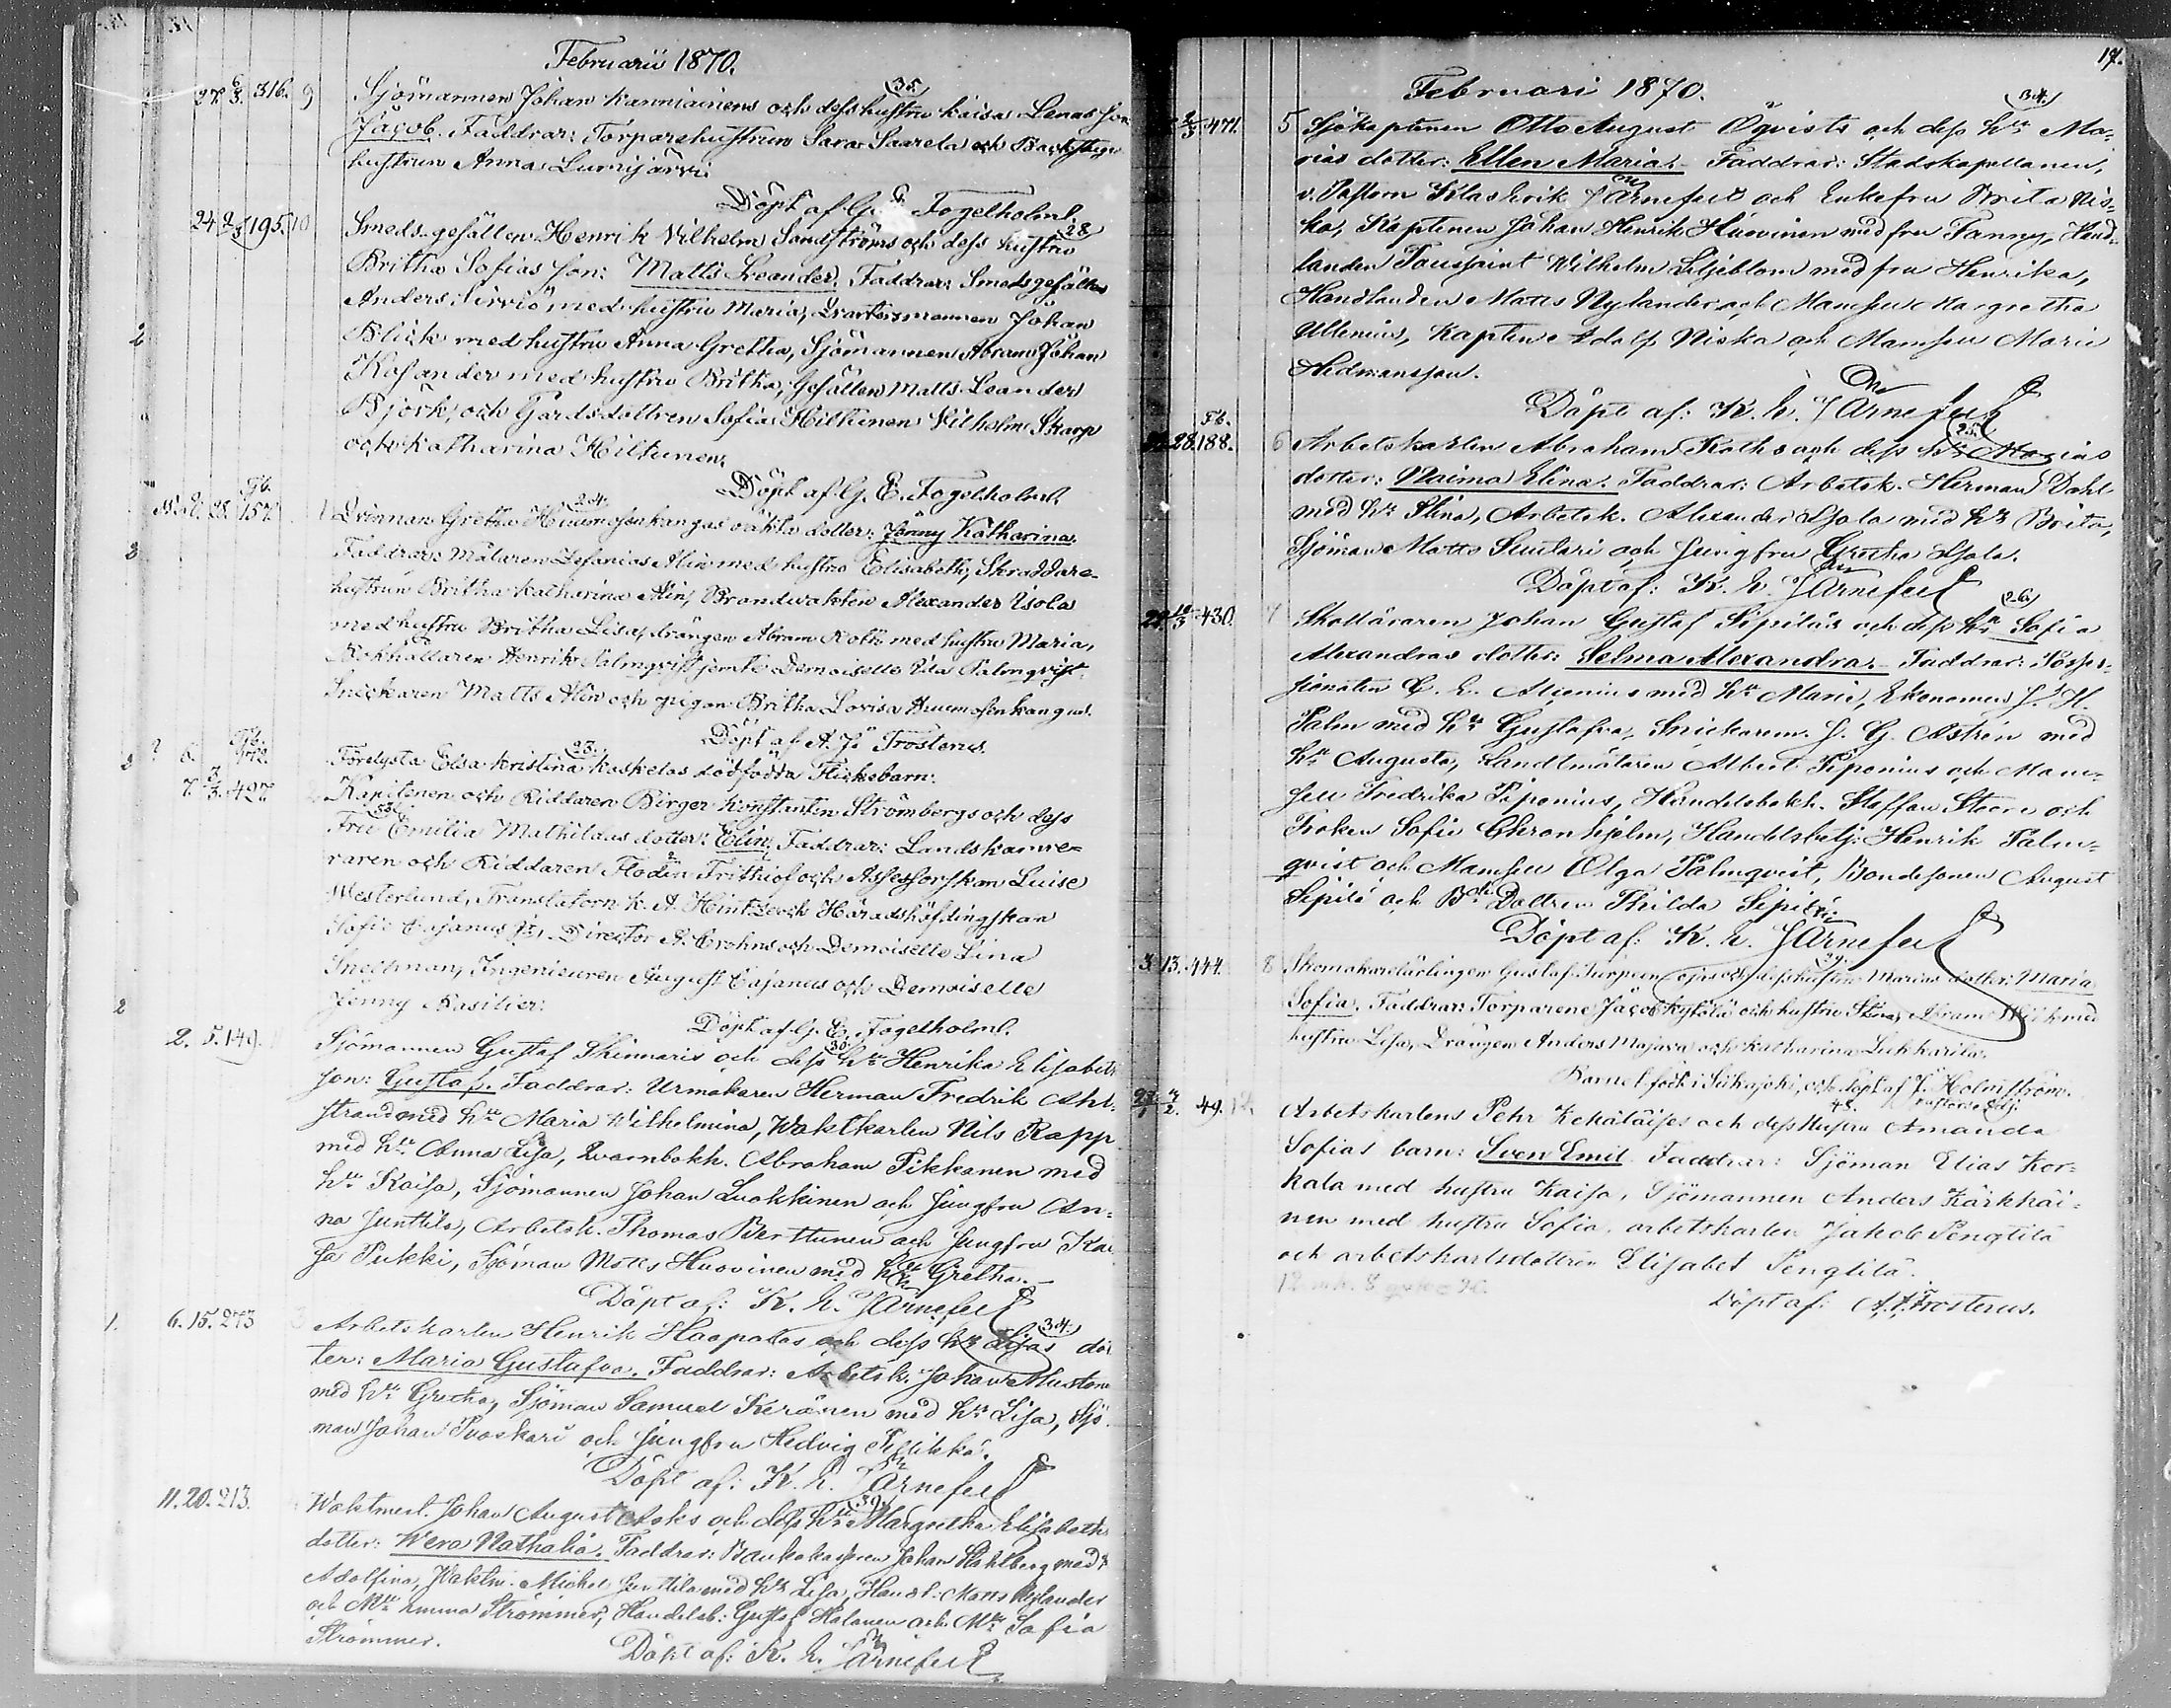 Februarii 1870.
27. 6/3. 316. 9 Sjömannen Johan Kanniainens och dess hustru Kaisa Lenas son (35.)
Jacob. Faddrar: Torparehustrun Sara Saarela och Backstugu
hustrun Anna Lumijärvi.
Döpt af G. E. Fogelholm.
24 2/3 195. 10 Smeds-gesällen Henrik Vilhelm Sandströms och dess hustru (28)
Britha Sofias son: Matts Leander. Faddrar: Smedsgesällen
Anders Sirviö, med hustru Maria, Qvartersmannen Johan
Blick med hustru Anna Gretha, Sjömannen Abram Johan
Kasander med hustru Britha, Gesällen Matts Leander
Björk, och Gårdsdottren Sofia Hiltunen Vilhelm Skarp
och Katharina Hiltunen.
Döpt af G. E. Fogelholm.
28. 157. Qvinnan Gretha Huumosenkangas oäkta dotter: Jenny Katharina. (24.)
Faddrar: Målaren Zefanias Alin med hustru Elisabeth, Skräddare-
hustrun Britha Katharina Alin, Brandvakten Alexander Usola
med hustru Britha Lisa, drängen Abram Roth med hustru Maria,
Bokhållaren Henrik Palmqvist jemte Demoiselle Palmqvist,
Snickaren Matts Alin och pigan Britha Lovisa Huumosenkangas.
Döpt af A. J. Frosterus.
6. Förelysta Elsa Kristina Koskelas dödfödda Flickebarn. (23.)
7. 3/3. 427. Kapitenen och Riddaren Birger Konstantin Strömbergs och dess
Fru Emilia Mathildas dotter: Elin, Faddrar: Landskamre-
raren och Riddaren Flodin Frithiof och Assessorskan Luise
Westerlund, Translatorn K. A. Hintze och Häradshöfdingskan
Sofie Cajanus, Director A. Crohns och Demoiselle Lina
Snellman, Ingenieuren August Cajanus och Demoiselle
Jenny Rasilier.
Döpt af G. E. Fogelholm.
2. 5. 149. Sjömannen Gustaf Skinnaris och dess h:u Henrika Elisabets (30.)
son: Gustaf. Faddrar: Urmakaren Herman Fredrik Ahl-
strand med h:u Maria Wilhelmina, Waktkarlen Nils Rapp
med h:u Anna Lisa, Qvarnbokh. Abraham Tikkanen med
h:u Kaisa, Sjömannen Johan Luokkinen och Jungfru An-
na Junttila, Arbetsk. Thomas Berttunen och Jungfru Kai
sa Pukki, Sjöman Matts Huovinen med h:u Gretha.
Döpt af: K. h. Järnefelt
6. 15. 273 3 Arbetskarlen Henrik Haapalas och dess h:u Lisas dot (34.)
ter: Maria Gustafva. Faddrar: Arbetsk. Johan Mustonen
med h:u Gretha, Sjöman Samuel Keränen med h:u Lisa, Sjö
man Johan Puoskari och Jungfru Hedvig Pellikka.
Döpt af: K. h. Järnefelt
11. 20. 213. Waktmest. Johan August Asks och dess h:u Margretha Elisabeths (39)
dotter: Wera Nathalia. Faddrar: Johan Ståhlberg med
Adolfina, Waktm. Michel Junttila med h:u Lisa, Handl. Matts Nylander
och M:ll Emma Strömmer, Handelsb: Gustaf Halonen och M:ll Sofia
Strömmer.
Döpt af: K. h. Järnefelt
17.
Februari 1870.
2/3 471. 5 Sjökaptenen Otto August Öqvists och dess h:u Ma- (34.)
rias dotter: Ellen Maria. Faddrar: Stadskapellanen,
v. Pastorn Klas Henrik Järnefelt och Enkefru Brita Nis-
ka, Kaptenen Johan Henrik Huovinen med fru Fanny, Hand-
landen Toussaint Wilhelm Liljeblom med fru Henrika,
Handlanden Matts Nylander och Mamsell Margretha
Ullenius, Kapten Adolf Niska och Mamsell Marie
Hedmansson.
Döpt af: K. h. Järnefelt
28. 188. 6 Arbetskarlen Abraham Roths och dess h:u Marias (25.)
dotter: Naima Elina. Faddrar: Arbetsk. Herman Dahl
med h:u Stina, Arbetsk. Alexander Usola med h:u Brita,
Sjöman Matts Suutari och Jungfru Gretha Usola.
Döpt af: K. h. Järnefelt
430. 7 Skolläraren Johan Gustaf Sipiläs och dess h:u Sofia (26)
Alexandras dotter: Selma Alexandra. Faddrar: Posses-
sionaten C. E. Alcenius med h:u Marie, Ekonomen J. H.
Palm med h:u Gustafva, Snickaren J. G. Åström med
h:u Augusta, Landtmätaren Albert Piponius och Mam-
sell Fredrika Piponius, Handelsbokh. Staffan Stoore och
Fröken Sofie Ehrenhjelm, Handelsbetj. Henrik Palm-
qvist och Mamsell Olga Palmqvist, Bondesonen August
Sipilä och B:de Dottren Thilda Sipilä.
Döpt af: K. h. Järnefelt
3 13. 444. 8 Skomakarelärlingen Gustaf och dess hustru Marias dotter: Maria (39.)
Sofia. Faddrar: Torparene Jacob Kylölä och hustru Stina, Abram med
hustru Lisa, Drängen Anders Majava och Katharina Luhkarila.
Barnet född i Siikajoki, och döpt af J. Holmström.
Pastors Adj.
2/2. 49. Arbetskarlens Pehr Kekäläises och dess Hustru Amanda 48.
Sofias barn: Sven Emil. Faddrar: Sjöman Elias Kor-
kala med hustru Kaisa, Sjömannen Anders Kärkkäi-
nen med hustru Sofia, arbetskarlen Jakob Pengtilä
och arbetskarlsdottren Elisabet Pengtilä.
Döpt af: A. J. Frosterus.